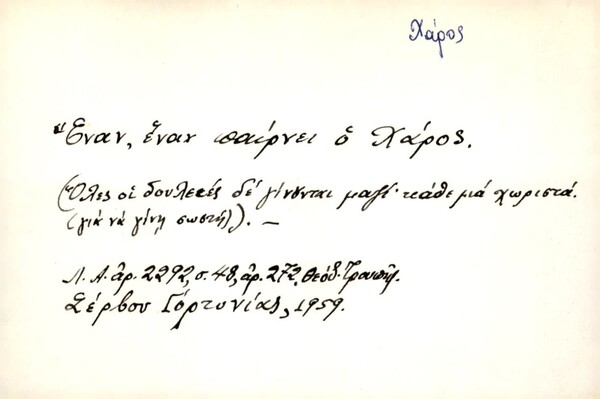 Χάρος
Ἕναν, ἕναν παίρνει ὁ Χάρος.
(Ὅλες οἱ δουλειές δέ γίνονται μαζί· κάθε μιά χωριστά.
(γιά νά γίνῃ σωστή)). —
Λ. Α. ἀρ. 2292, σ. 48, ἀρ. 272, Θεόδ.
Σέρβου Γόρτυνίας, 1959.